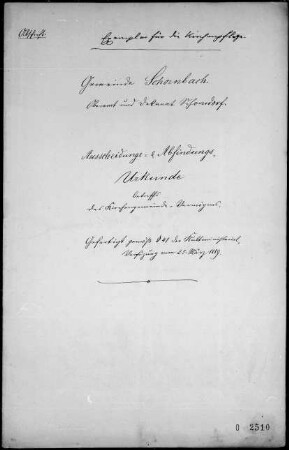 Abschrift.
Exemplar für die Kirchenpflege.
Gemeinde Schornbach
Oberamt und Dekanat Schorndorf.
Ausscheidungs- & Abfindungs-
Urkunde
betreffs
des Kirchengemeinde-Vermögens.
Gefertigt gemäß § 41 der Kultministerial-
Verfügung vom 25. März 1889.
0 2510